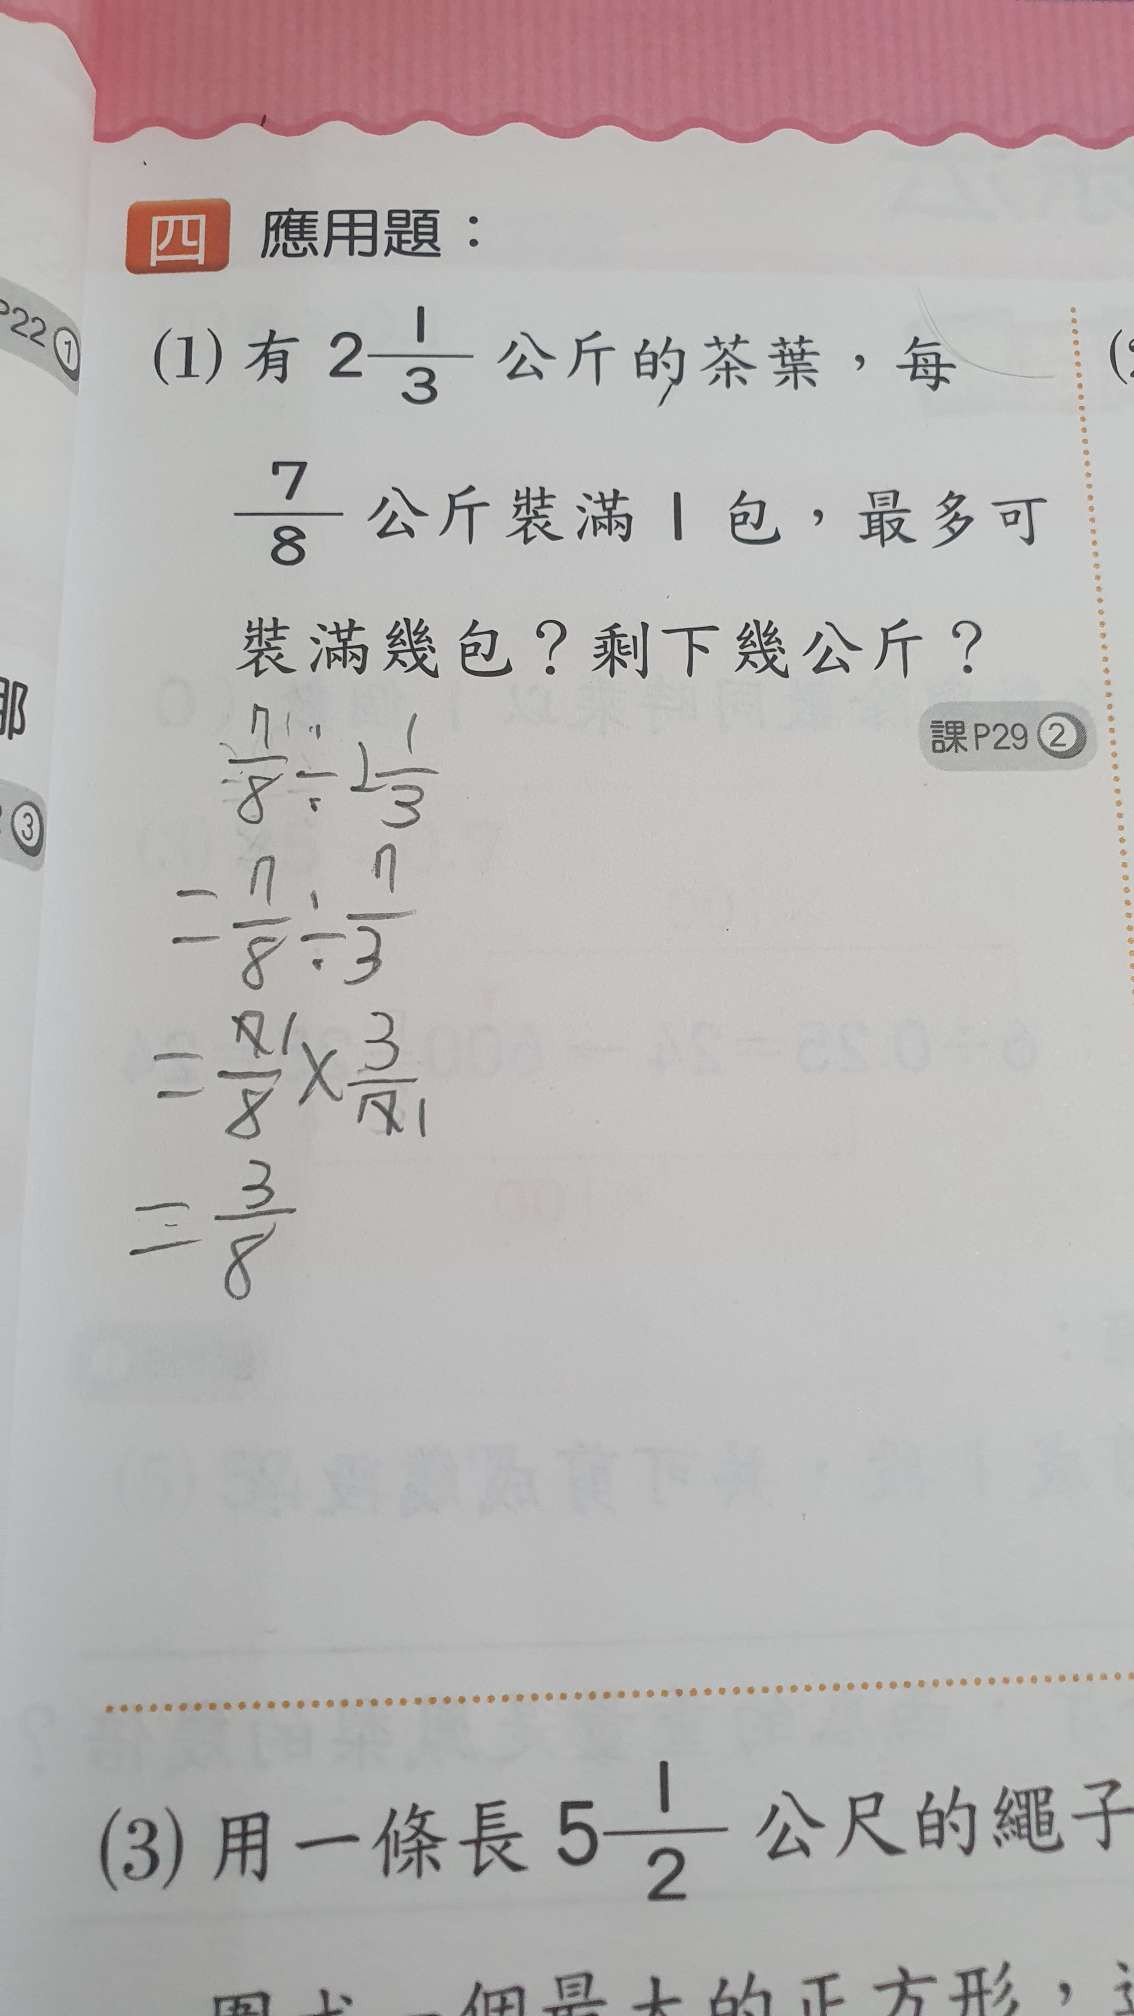 P22①
四 應用題：
(1) 有 2 1/3 公斤的茶葉，每
7/8 公斤裝滿 1 包，最多可
裝滿幾包？剩下幾公斤？
課P29②
那
③
7/8 ÷ 2 1/3
= 7/8 ÷ 7/3
= 7 1/8 × 3/7 1
= 3/8
(3) 用一條長 5 1/2 公尺的繩子
圍成一個最大的正方形，